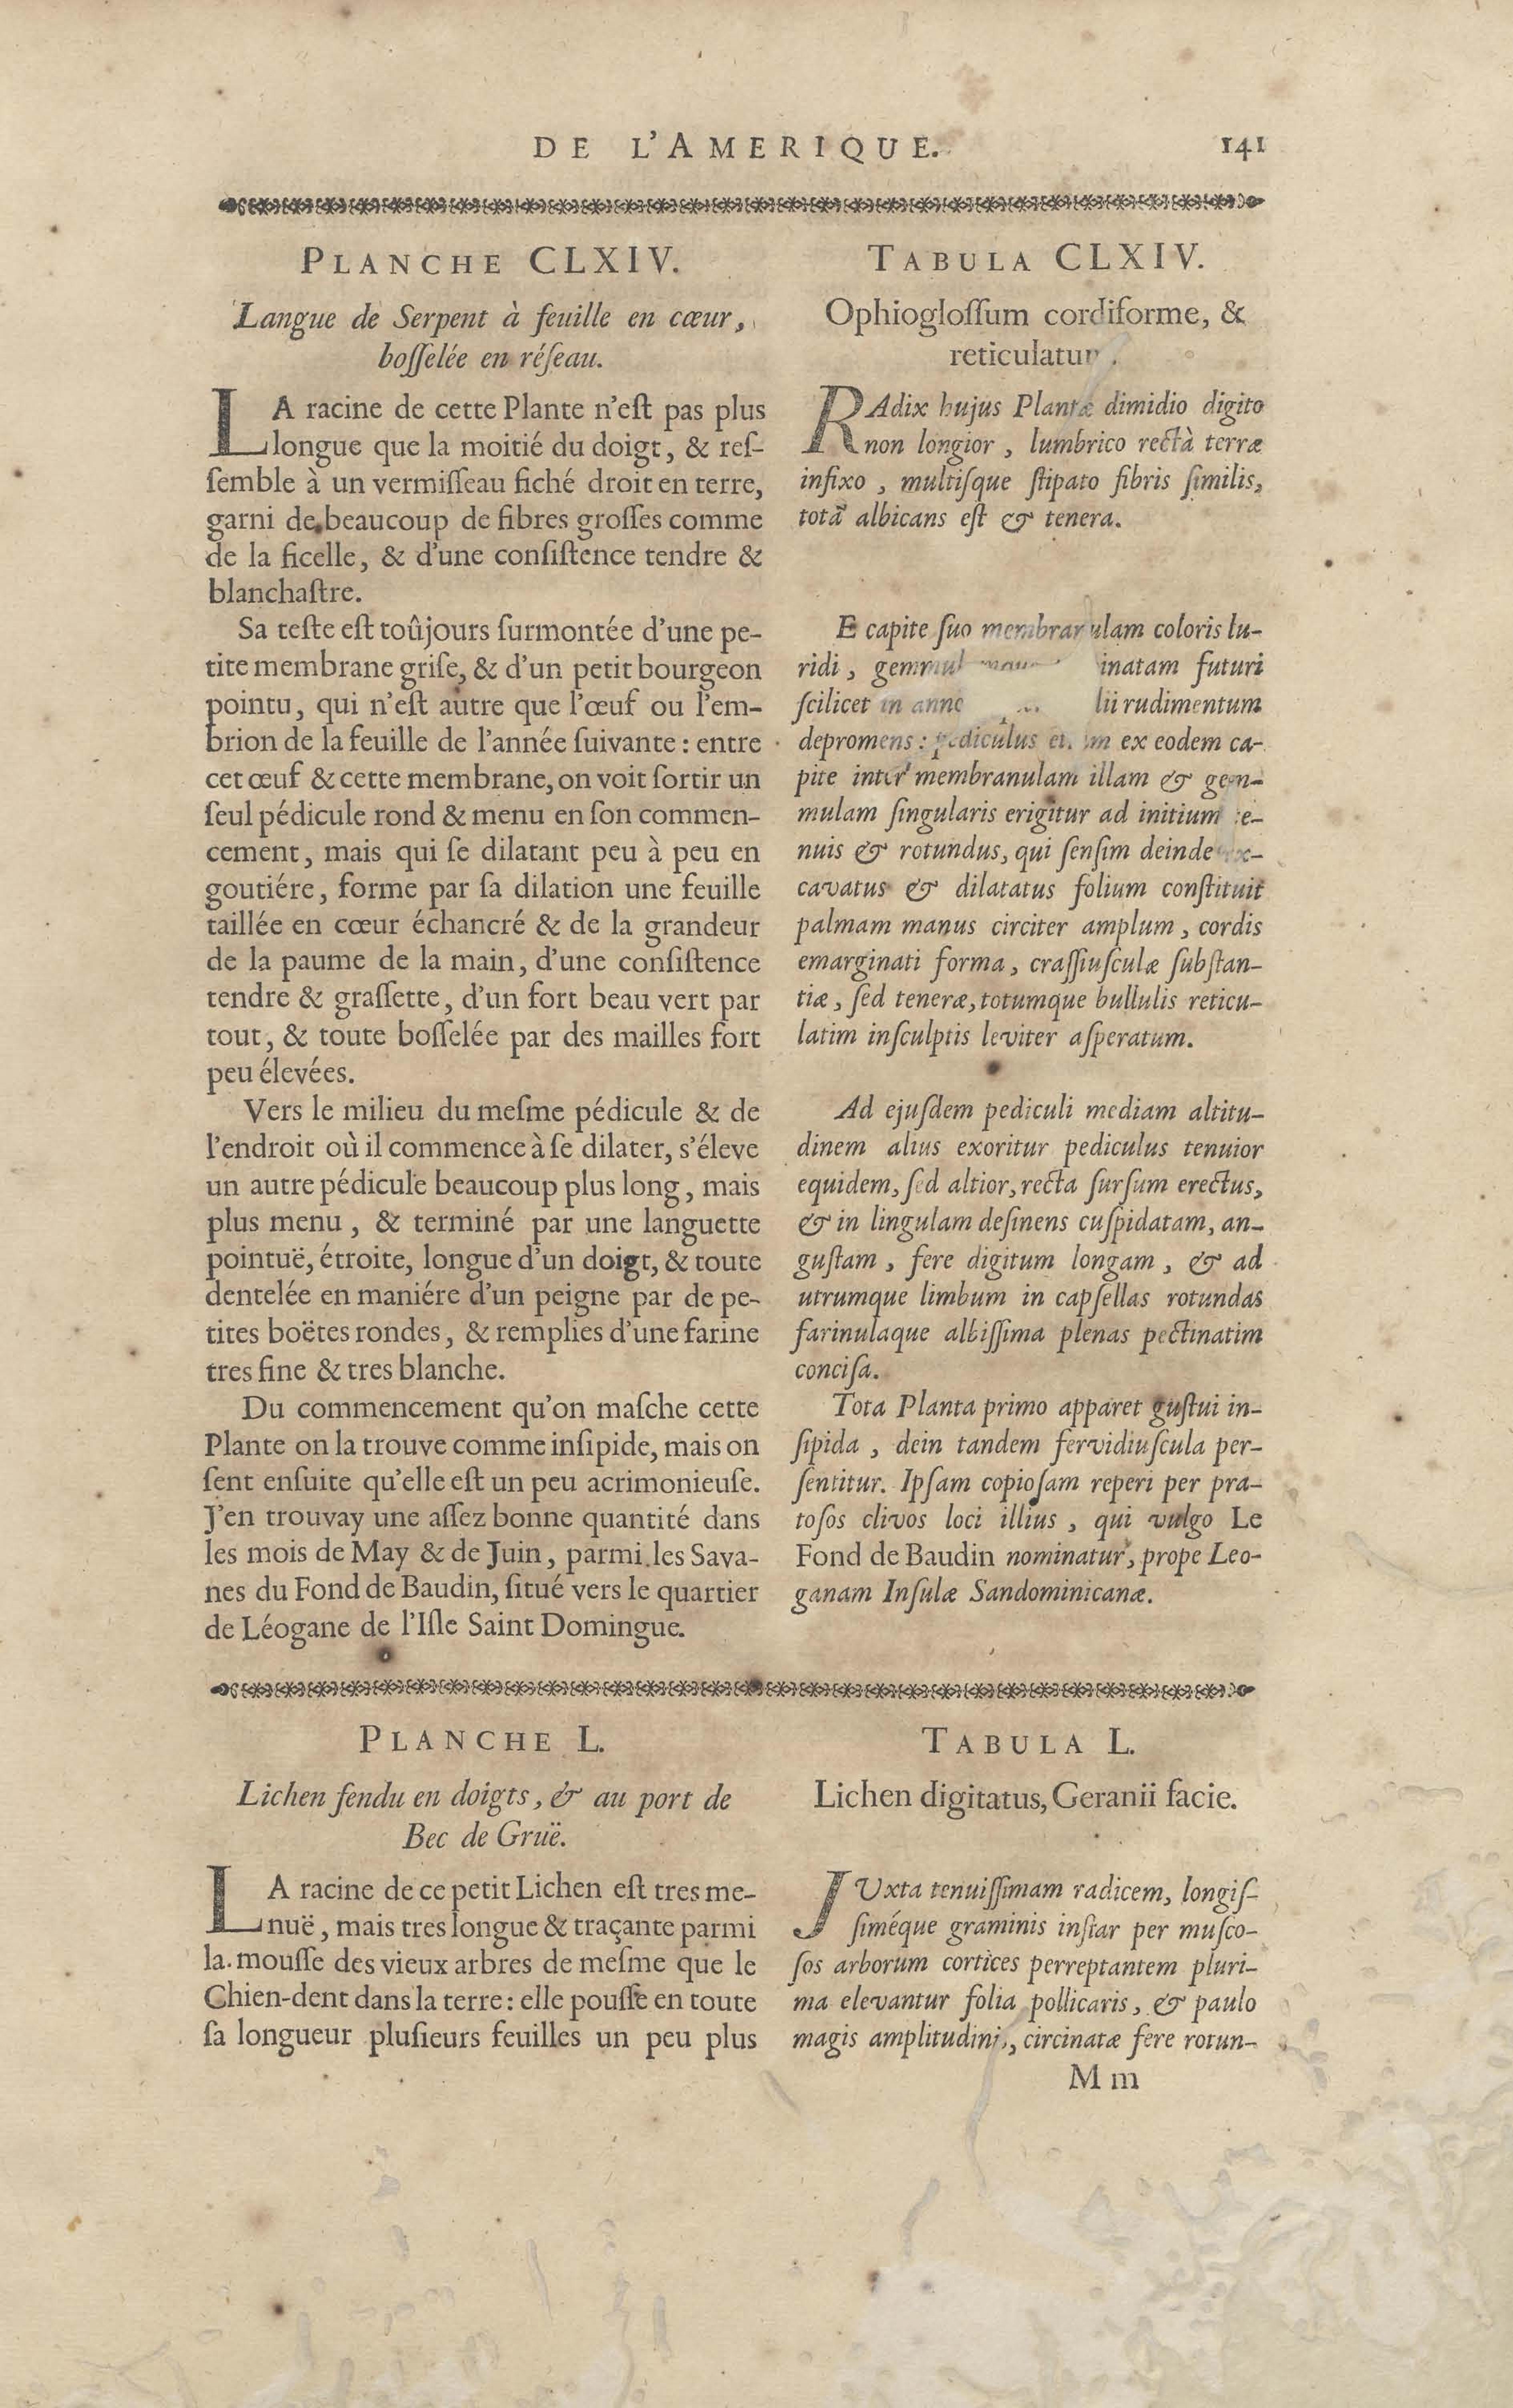 DE L'AMERIQUE. 141
PLANCHE CLXIV.
Langue de Serpent à feuille en cœur,
boſſelée en réſeau.
LA racine de cette Plante n'eſt pas plus
longue que la moitié du doigt, & reſ-
ſemble à un vermiſſeau fiché droit en terre,
garni de beaucoup de fibres groſſes comme
de la ficelle, & d'une conſiſtence tendre &
blanchaſtre.
Sa teſte eſt toûjours ſurmontée d'une pe-
tite membrane griſe, & d'un petit bourgeon
pointu, qui n'eſt autre que l'œuf ou l'em-
brion de la feuille de l'année ſuivante : entre
cet œuf & cette membrane, on voit ſortir un
ſeul pédicule rond & menu en ſon commen-
cement, mais qui ſe dilatant peu à peu en
goutiére, forme par ſa dilation une feuille
taillée en cœur échancré & de la grandeur
de la paume de la main, d'une conſiſtence
tendre & graſſette, d'un fort beau vert par
tout, & toute boſſelée par des mailles fort
peu élevées.
Vers le milieu du meſme pédicule & de
l'endroit où il commence à ſe dilater, s'éleve
un autre pédicule beaucoup plus long, mais
plus menu, & terminé par une languette
pointuë, étroite, longue d'un doigt, & toute
dentelée en maniére d'un peigne par de pe-
tites boëtes rondes, & remplies d'une farine
tres fine & tres blanche.
Du commencement qu'on maſche cette
Plante on la trouve comme inſipide, mais on
ſent enſuite qu'elle eſt un peu acrimonieuſe.
J'en trouvay une aſſez bonne quantité dans
les mois de May & de Juin, parmi les Sava-
nes du Fond de Baudin, ſitué vers le quartier
de Léogane de l'Iſle Saint Domingue.
TABULA CLXIV.
Ophiogloſſum cordiforme, &
reticulatum.
RAdix hujus Plantæ dimidio digito
non longior, lumbrico rectà terræ
infixo, multiſque ſtipato fibris ſimilis,
tota albicans eſt & tenera.
E capite ſuo membranulam coloris lu-
ridi, inatam futuri
ſcilicet in lii rudimentum
depromens : pediculus etiam ex eodem ca-
pite inter membranulam illam & gem-
mulam ſingularis erigitur ad initium te-
nuis & rotundus, qui ſenſim deinde ex-
cavatus & dilatatus folium conſtituit
palmam manus circiter amplum, cordis
emarginati forma, craſſiuſculæ ſubſtan-
tiæ, ſed teneræ, totumque bullulis reticu-
latim inſculptis leviter aſperatum.
Ad ejuſdem pediculi mediam altitu-
dinem alius exoritur pediculus tenuior
equidem, ſed altior, recta ſurſum erectus,
& in lingulam deſinens cuſpidatam, an-
guſtam, fere digitum longam, & ad
utrumque limbum in capſellas rotundas
farinulaque albiſſima plenas pectinatim
conciſa.
Tota Planta primo apparet guſtui in-
ſipida, dein tandem fervidiuſcula per-
ſentitur. Ipſam copioſam reperi per pra-
toſos clivos loci illius, qui vulgo Le
Fond de Baudin nominatur, prope Leo-
ganam Inſulæ Sandominicanæ.
PLANCHE L.
Lichen fendu en doigts, & au port de
Bec de Gruë.
LA racine de ce petit Lichen eſt tres me-
nuë, mais tres longue & traçante parmi
la mouſſe des vieux arbres de meſme que le
Chien-dent dans la terre : elle pouſſe en toute
ſa longueur pluſieurs feuilles un peu plus
TABULA L.
Lichen digitatus, Geranii facie.
JUxta tenuiſſimam radicem, longiſ-
ſiméque graminis inſtar per muſco-
ſos arborum cortices perreptantem pluri-
ma elevantur folia pollicaris, & paulo
magis amplitudinis, circinatæ fere rotun-
M m